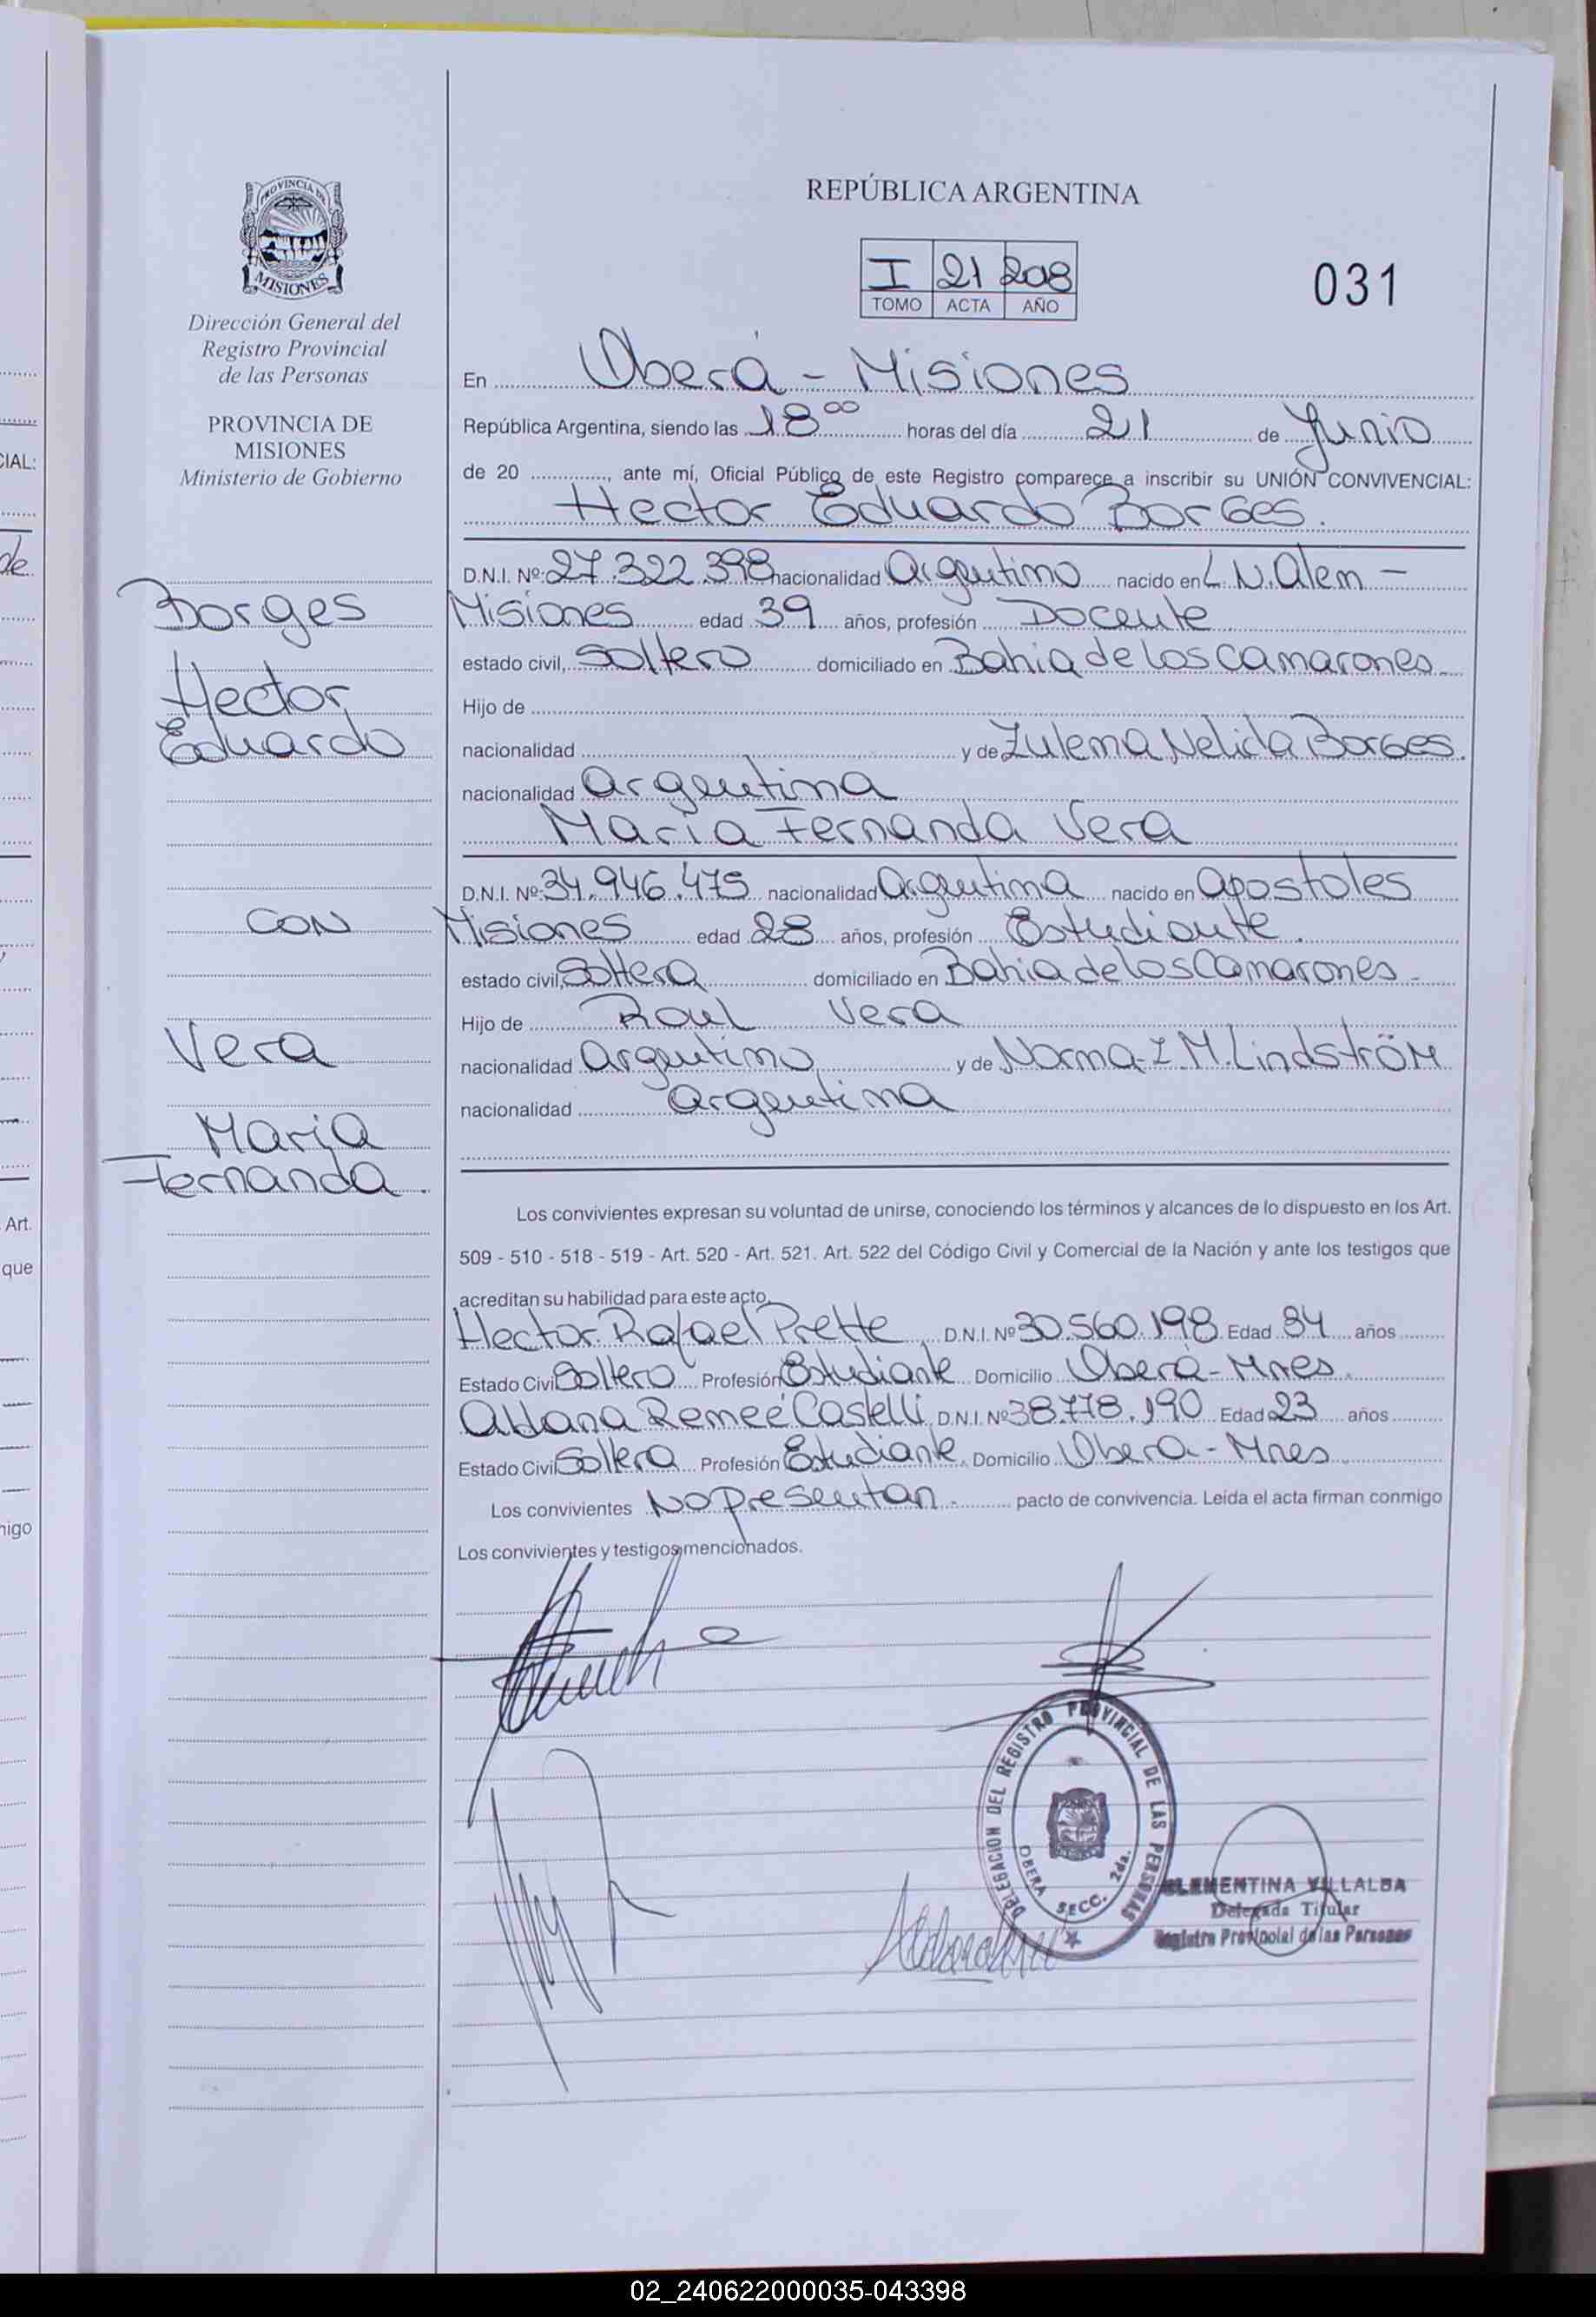 PROVINCIA DE
MISIONES
Dirección General del
Registro Provincial
de las Personas
PROVINCIA DE
MISIONES
Ministerio de Gobierno
Borges
Hector
Eduardo
CON
Vera
Maria
Fernanda.
REPÚBLICA ARGENTINA
I 21 208
TOMO ACTA AÑO
031
En Oberá - Misiones
República Argentina, siendo las 18⁰⁰ horas del día 21 de Junio
de 20 ............, ante mí, Oficial Público de este Registro comparece a inscribir su UNIÓN CONVIVENCIAL:
Hector Eduardo Borges.
D.N.I. Nº: 27.322.398 nacionalidad Argentino nacido en L.N.Alem -
Misiones edad 39 años, profesión Docente
estado civil, Soltero domiciliado en Bahia de Los Camarones
Hijo de
nacionalidad y de Zulema Nelida Borges.
nacionalidad Argentina
Maria Fernanda Vera
D.N.I. Nº: 34.946.475 nacionalidad Argentina nacido en Apostoles
Misiones edad 28 años, profesión Estudiante.
estado civil, Soltera domiciliado en Bahia de Los Camarones -
Hijo de Raul Vera
nacionalidad Argentino y de Norma-I.M.Lindström
nacionalidad Argentina
Los convivientes expresan su voluntad de unirse, conociendo los términos y alcances de lo dispuesto en los Art.
509 - 510 - 518 - 519 - Art. 520 - Art. 521. Art. 522 del Código Civil y Comercial de la Nación y ante los testigos que
acreditan su habilidad para este acto,
Hector Rafael Prette D.N.I. Nº 30.560.198 Edad 34 años
Estado Civil Soltero Profesión Estudiante Domicilio Oberá - Mnes.
Aldana Remeé Castelli D.N.I. Nº 38.778.190 Edad 23 años
Estado Civil Soltera Profesión Estudiante. Domicilio Obera - Mnes
Los convivientes No presentan. pacto de convivencia. Leída el acta firman conmigo
Los convivientes y testigos mencionados.
DELEGACION DEL REGISTRO PROVINCIAL DE LAS PERSONAS
OBERA SECC. 2da.
CLEMENTINA VILLALBA
Delegada Titular
Registro Provincial de las Personas
de
CIAL:
Art.
que
nigo
02_240622000035-043398